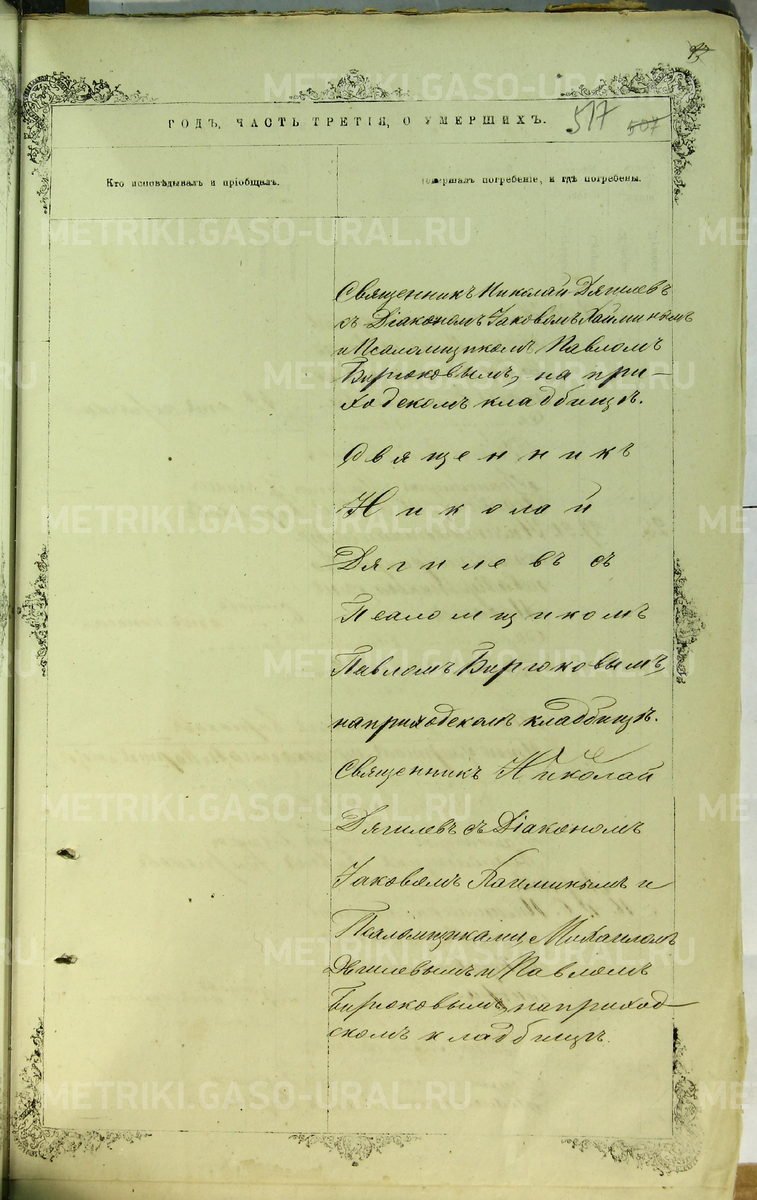 ГОДЪ, ЧАСТЬ ТРЕТІЯ, О УМЕРШИХЪ.
517
507
Кто исповѣдывалъ и пріобщалъ.
совершалъ погребеніе, и гдѣ погребены.
Священникъ Николай Дягилевъ
съ Діакономъ Іаковомъ
и Псаломщикомъ Павломъ
Бирюковымъ, на при-
ходскомъ кладбищѣ.
Священникъ
Николай
Дягилевъ съ
Псаломщикомъ
Павломъ Бирюковымъ,
на приходскомъ кладбищѣ.
Священникъ Николай
Дягилевъ съ Діакономъ
Іаковомъ и
Псаломщиками Михаиломъ
Дягилевымъ и Павломъ
Бирюковымъ, на приход-
скомъ кладбищѣ.
METRIKI.GASO-URAL.RU